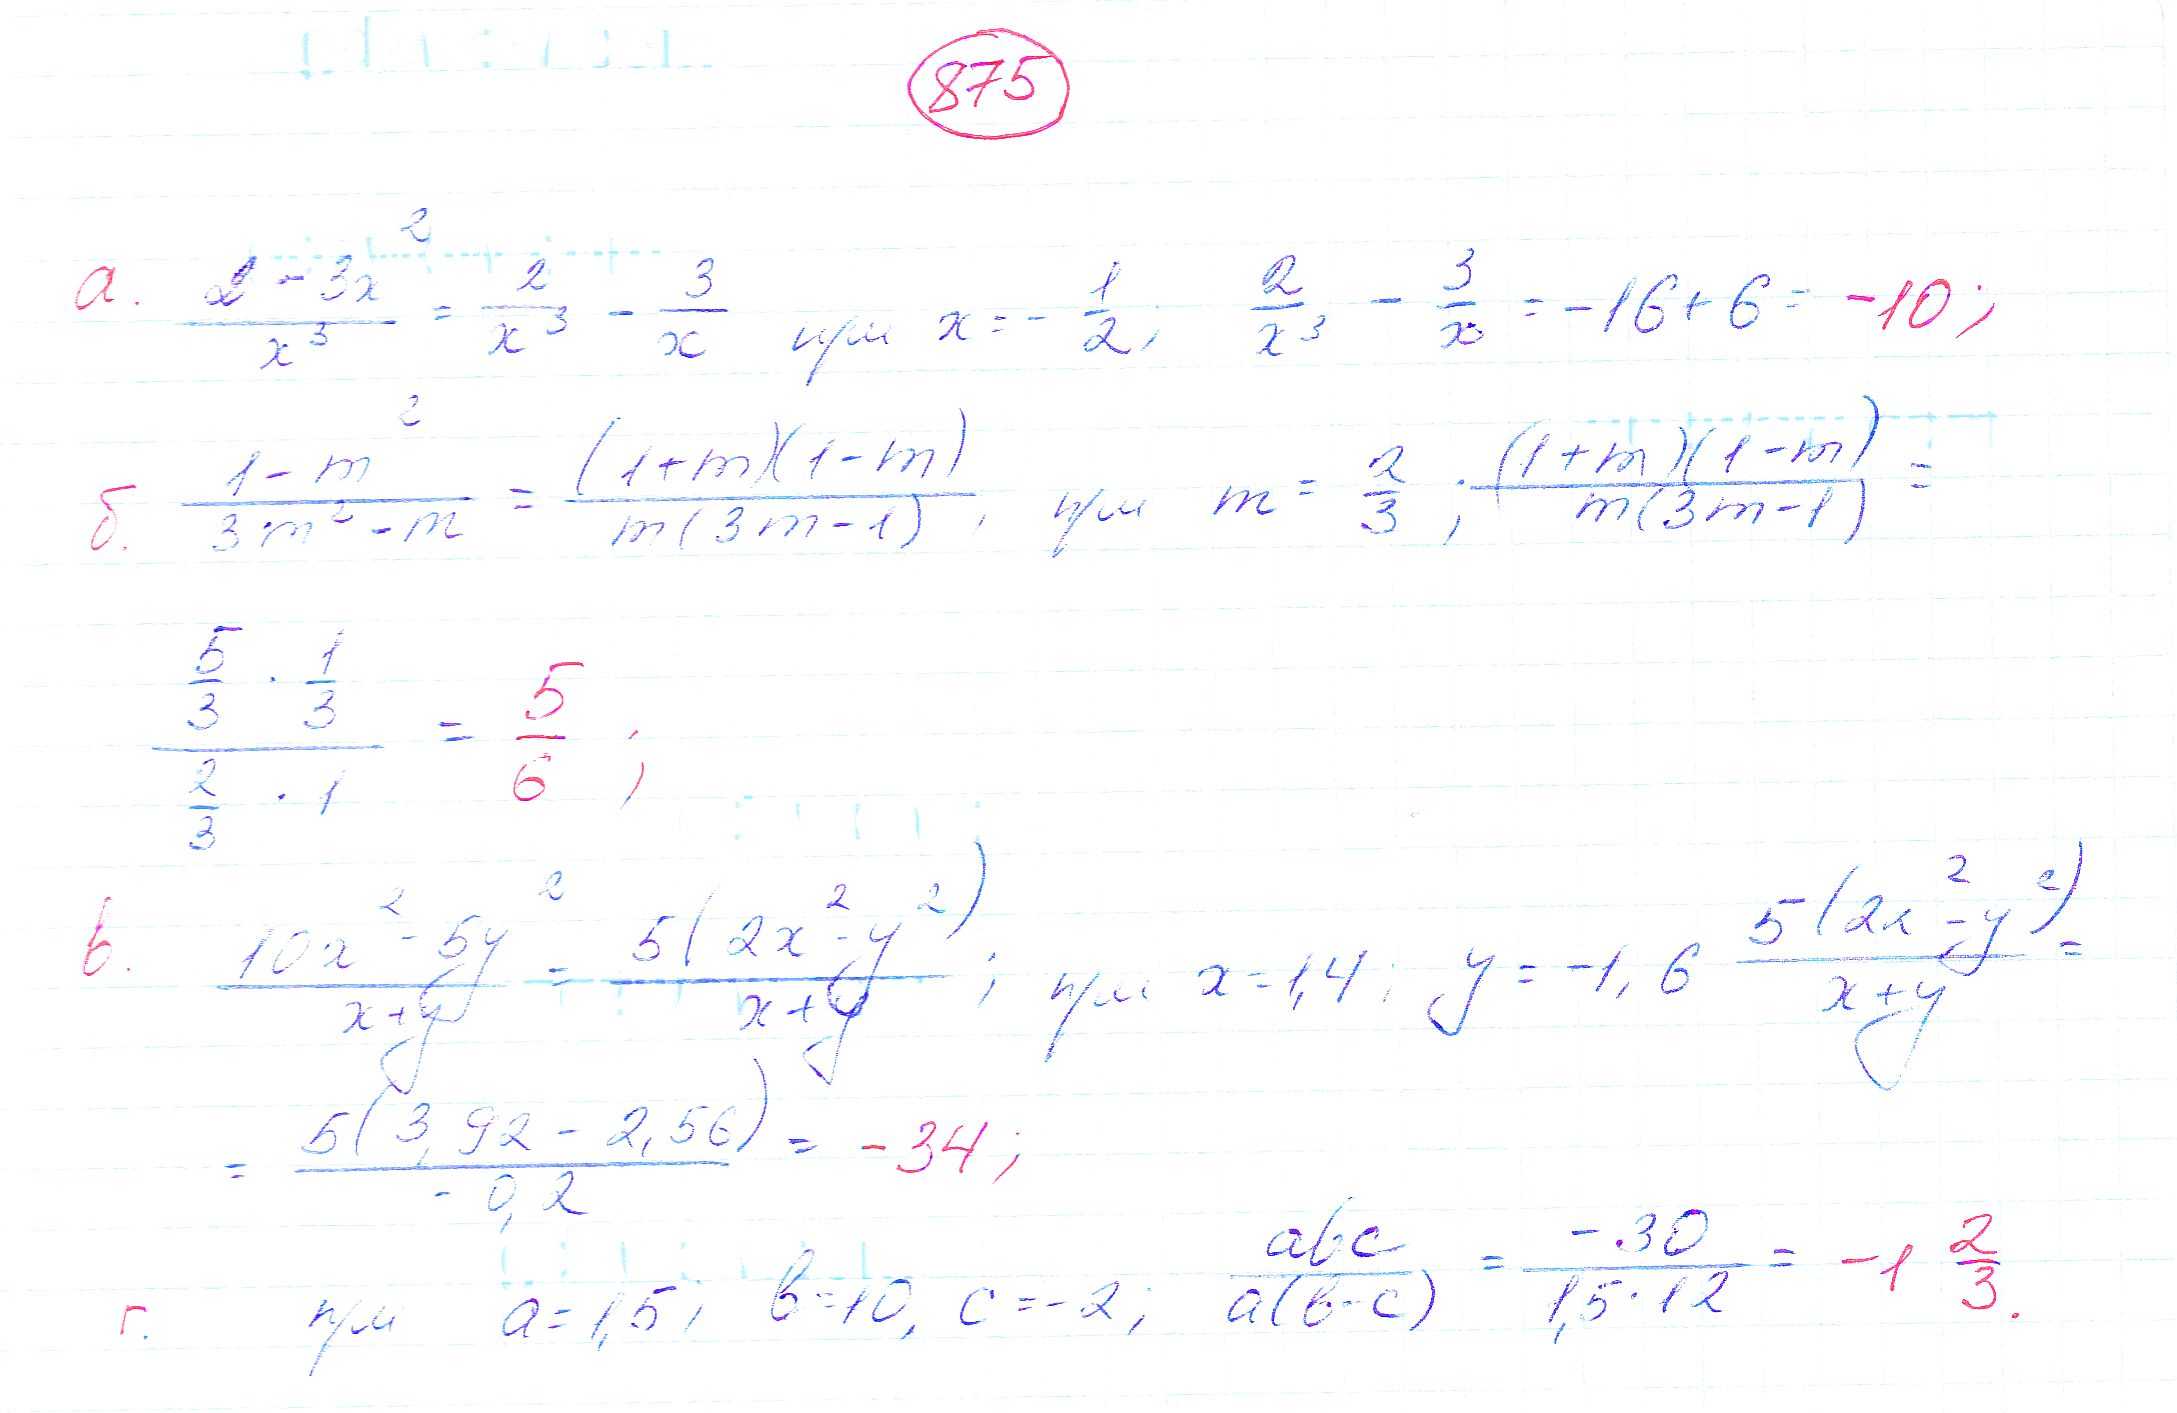 875
а. (2 - 3x²)/x³ = 2/x³ - 3/x при x = -1/2; 2/x³ - 3/x = -16 + 6 = -10;
б. (1 - m²)/(3m² - m) = ((1+m)(1-m))/(m(3m-1)), при m = 2/3; ((1+m)(1-m))/(m(3m-1)) =
(5/3 · 1/3)/(2/3 · 1) = 5/6;
в. (10x² - 5y²)/(x+y) = 5(2x² - y²)/(x+y); при x = 1,4; y = -1,6 5(2x² - y²)/(x+y) =
= 5(3,92 - 2,56)/(-0,2) = -34;
г. при a = 1,5; b = 10, c = -2; abc/(a(b-c)) = -30/(1,5·12) = -1 2/3.